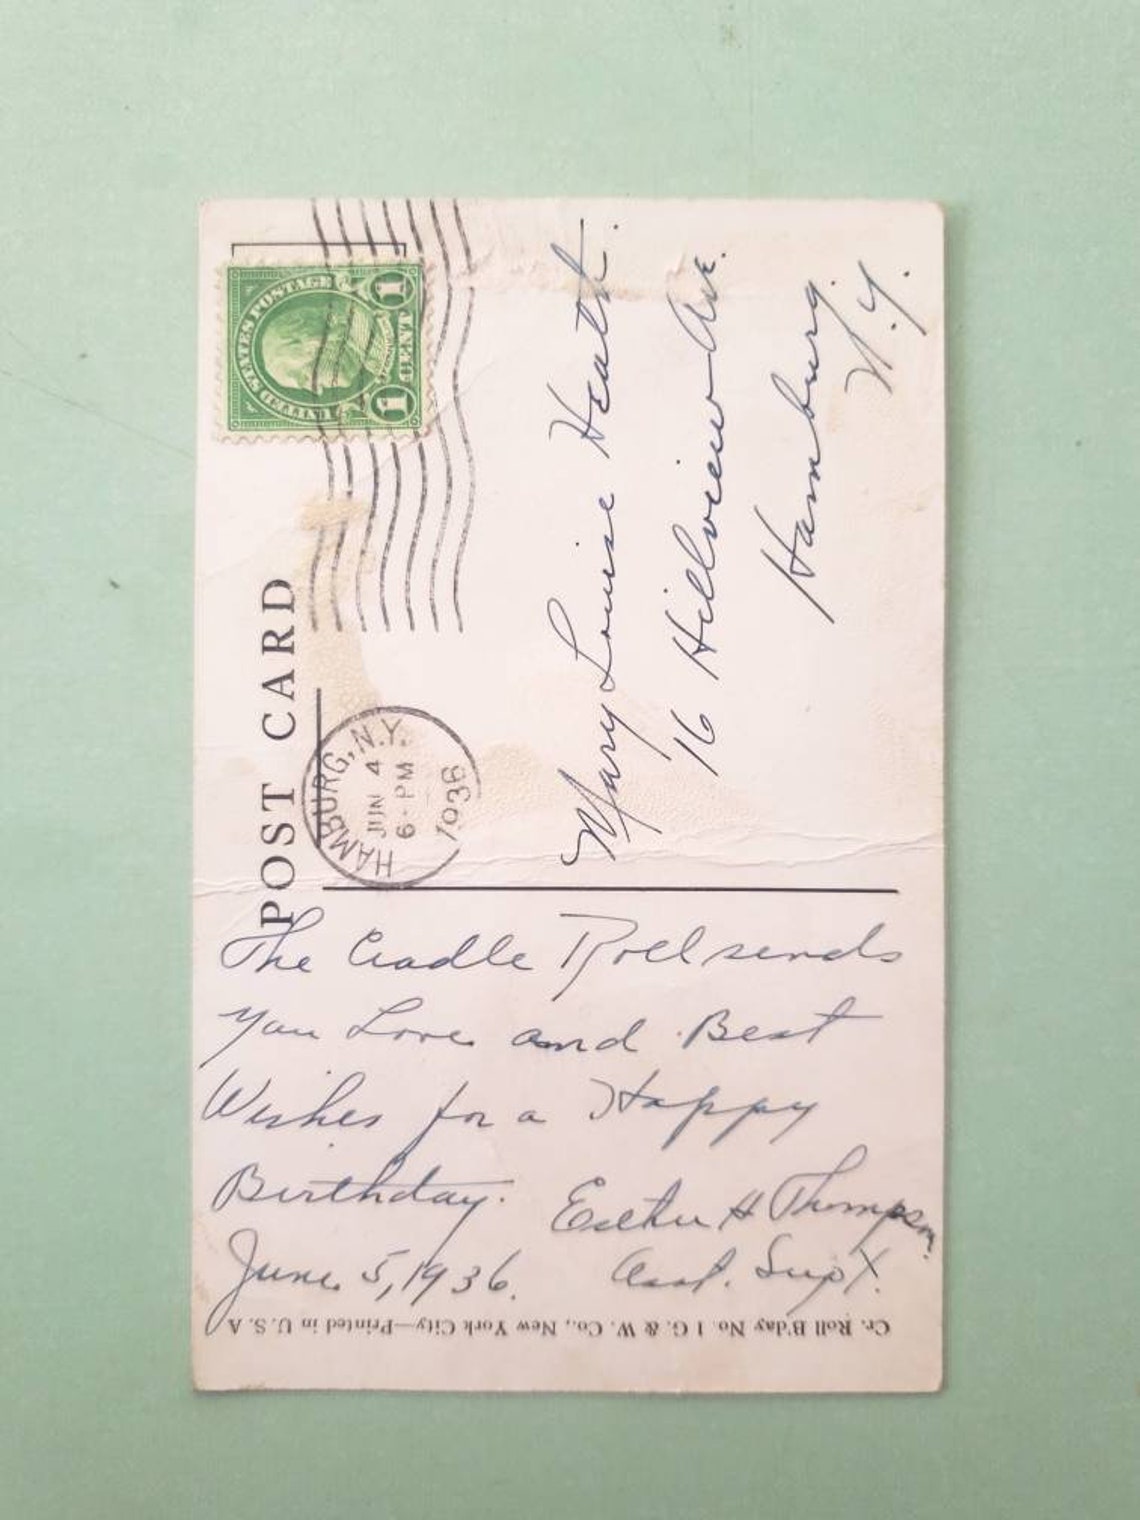 POST CARD
UNITED STATES POSTAGE
1 CENT 1
HAMBURG, N.Y.
JUN 4
6-PM
1936
Mary Louise Heath.
16 Hillview Ave.
Hamburg.
N.Y.
The Cradle Roll sends
you Love and Best
Wishes for a Happy
Birthday.
Esther H Thompson.
June 5, 1936.
Asst. Supt.
Cr. Roll B'day No. 1 G. & W. Co., New York City—Printed in U. S. A